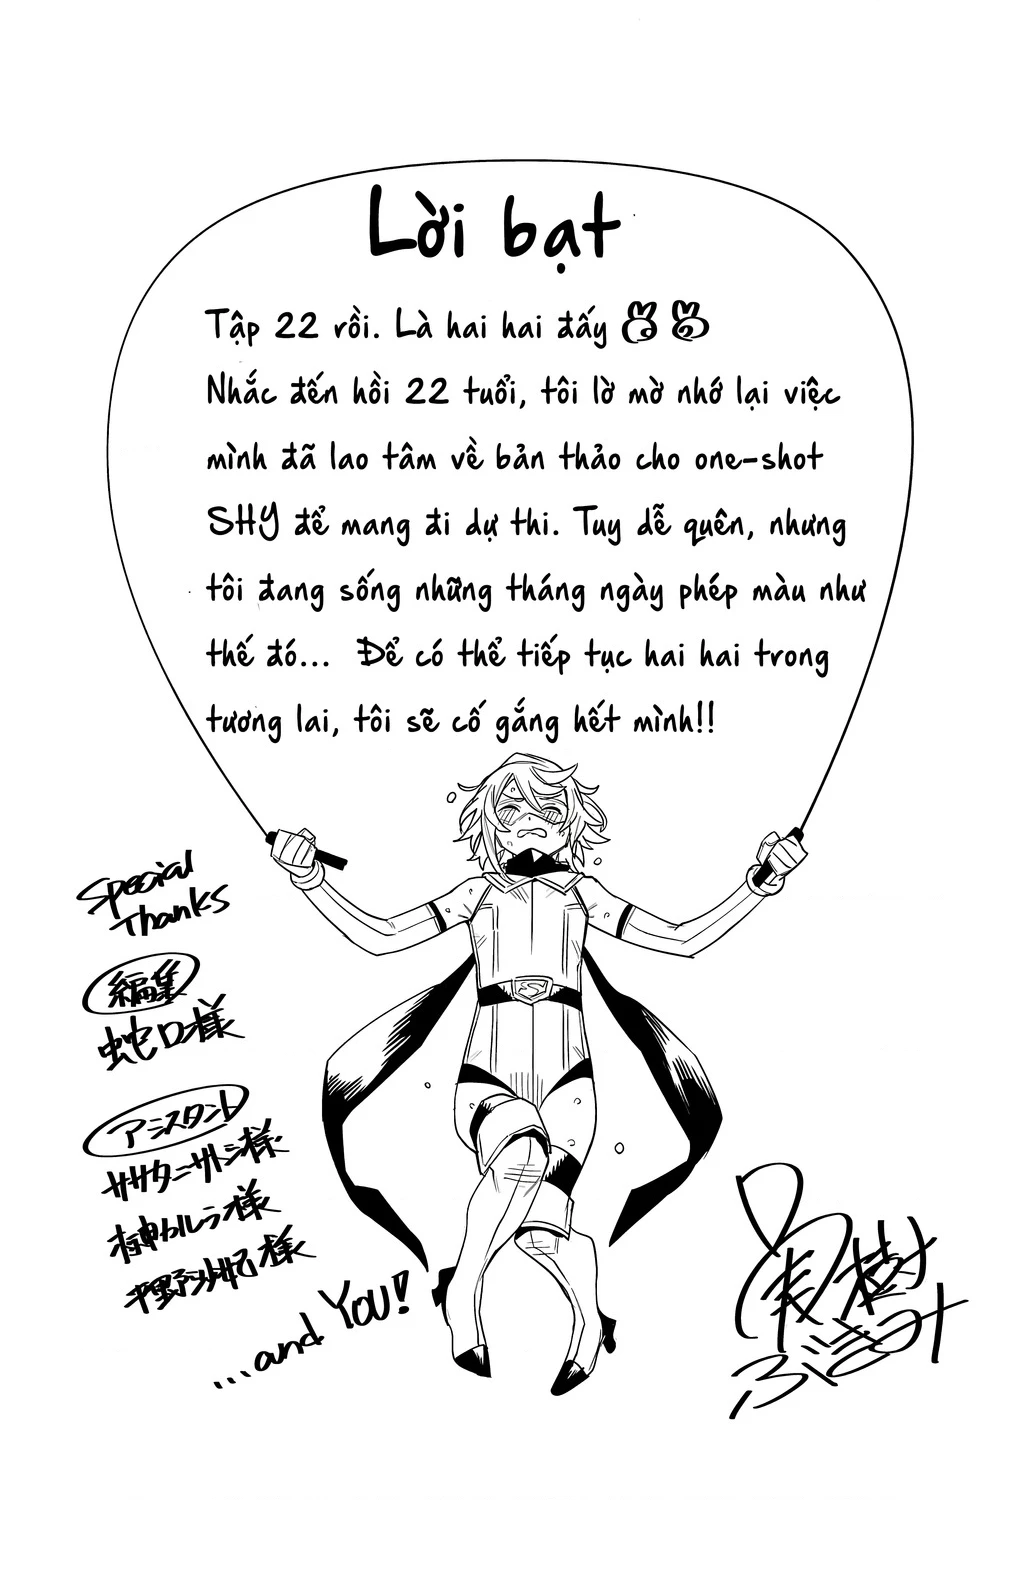 Lời bạt
Tập 22 rồi. Là hai hai đấy
Nhắc đến hồi 22 tuổi, tôi lờ mờ nhớ lại việc
mình đã lao tâm về bản thảo cho one-shot
SHY để mang đi dự thi. Tuy dễ quên, nhưng
tôi đang sống những tháng ngày phép màu như
thế đó... Để có thể tiếp tục hai hai trong
tương lai, tôi sẽ cố gắng hết mình!!
Special
Thanks
編集
蛇口様
アシスタント
ササタニサトシ様
神カルラ様
平野沙妃様
...and YOU!
S
実樹
ぶきみ